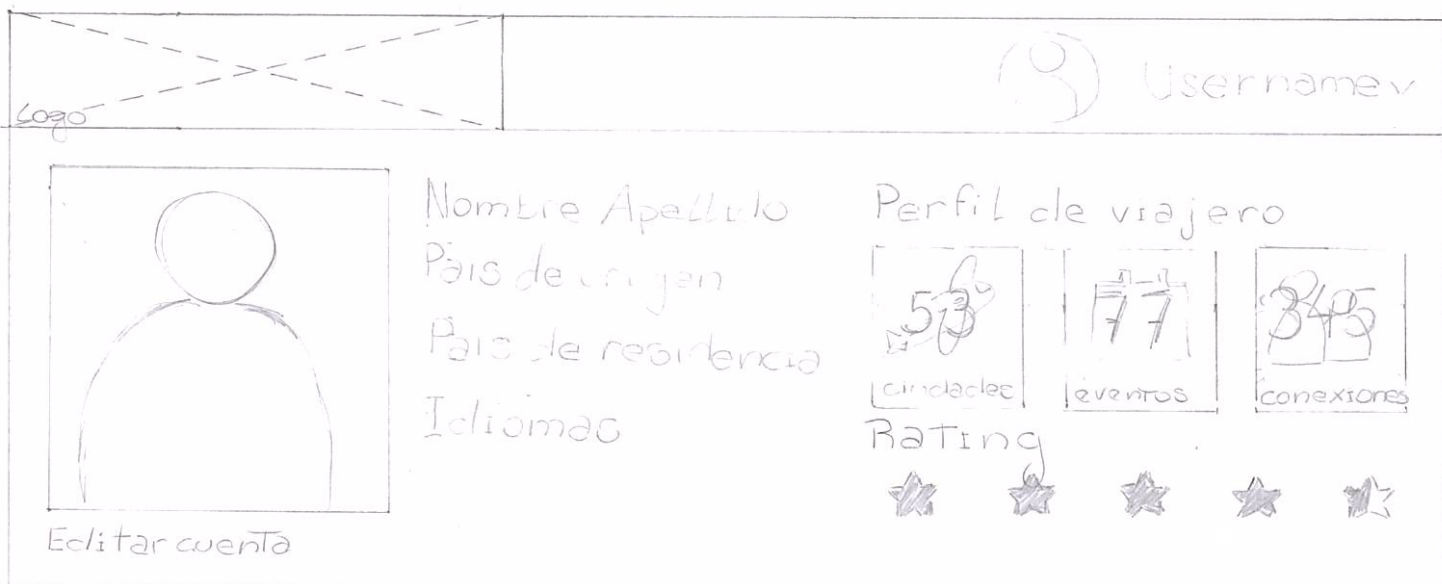 Logo
Username v
Nombre Apellido
País de origen
País de residencia
Idiomas
Editar cuenta
Perfil de viajero
53
ciudades
77
eventos
345
conexiones
Rating